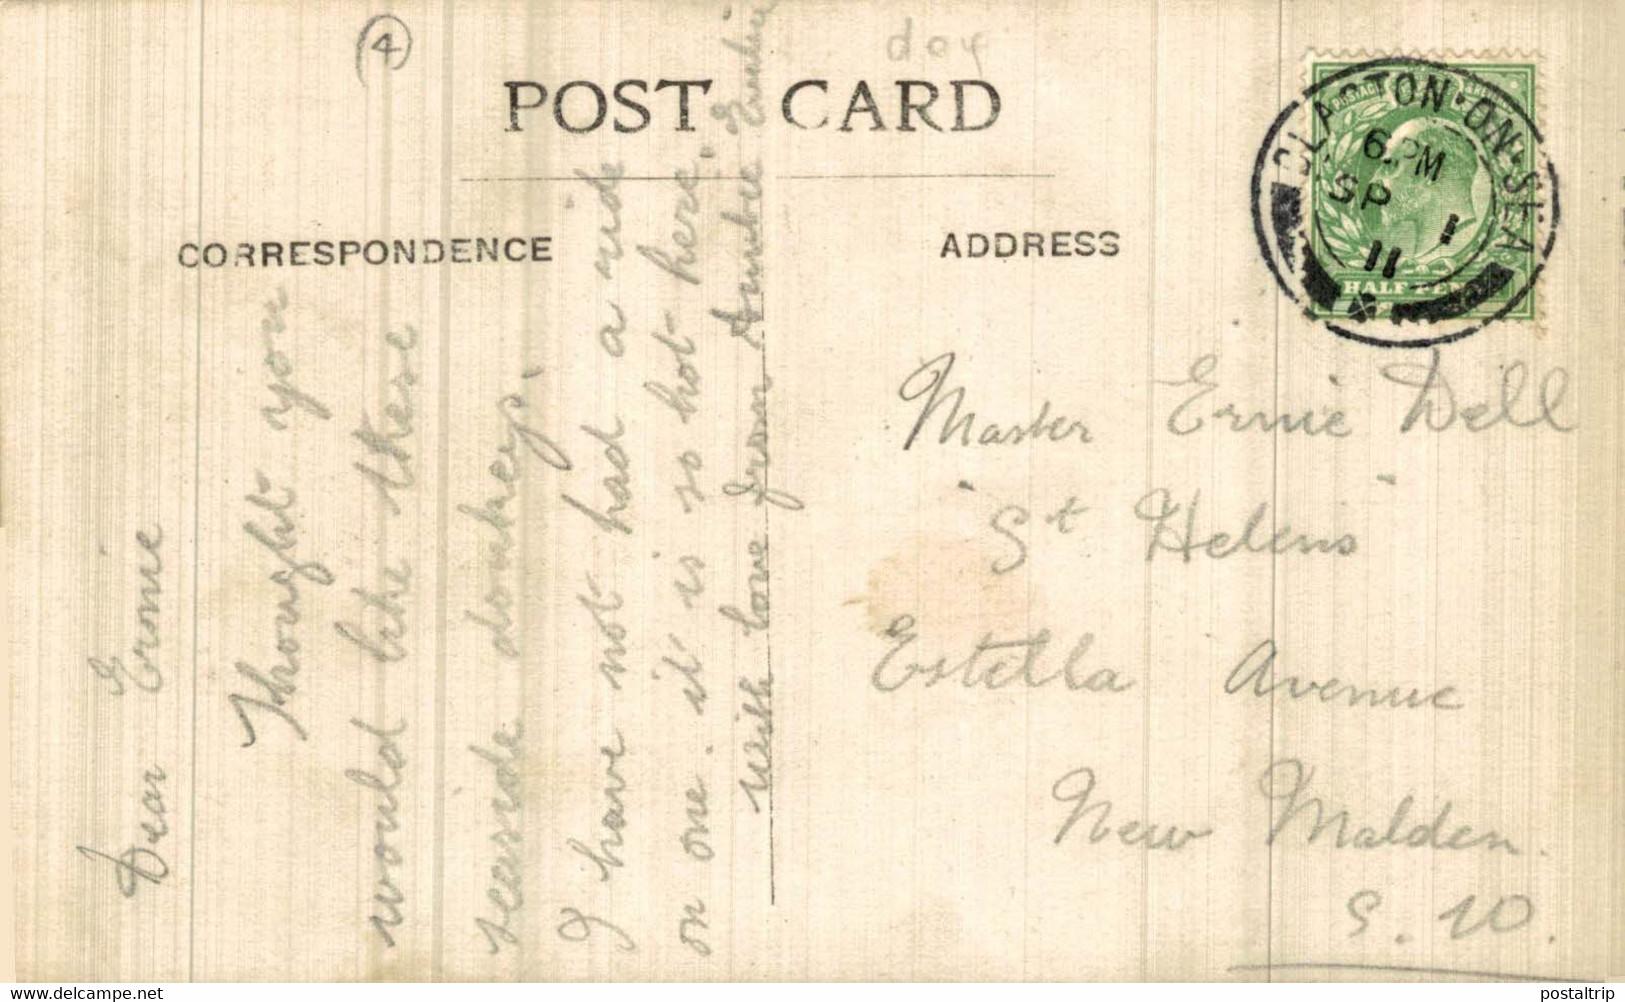 4
doy
POST CARD
CORRESPONDENCE
ADDRESS
CLACTON·ON·SEA
6.PM
SP 1
11
POSTAGE
HALF PENNY
Dear Ernie
Thought you
would like these
seaside donkeys.
I have not had a ride
on one. it is so hot here.
with love from Auntie
Master Ernie Dell
"St Helens"
Estella Avenue
New Malden.
S.W.
postaltrip
www.delcampe.net